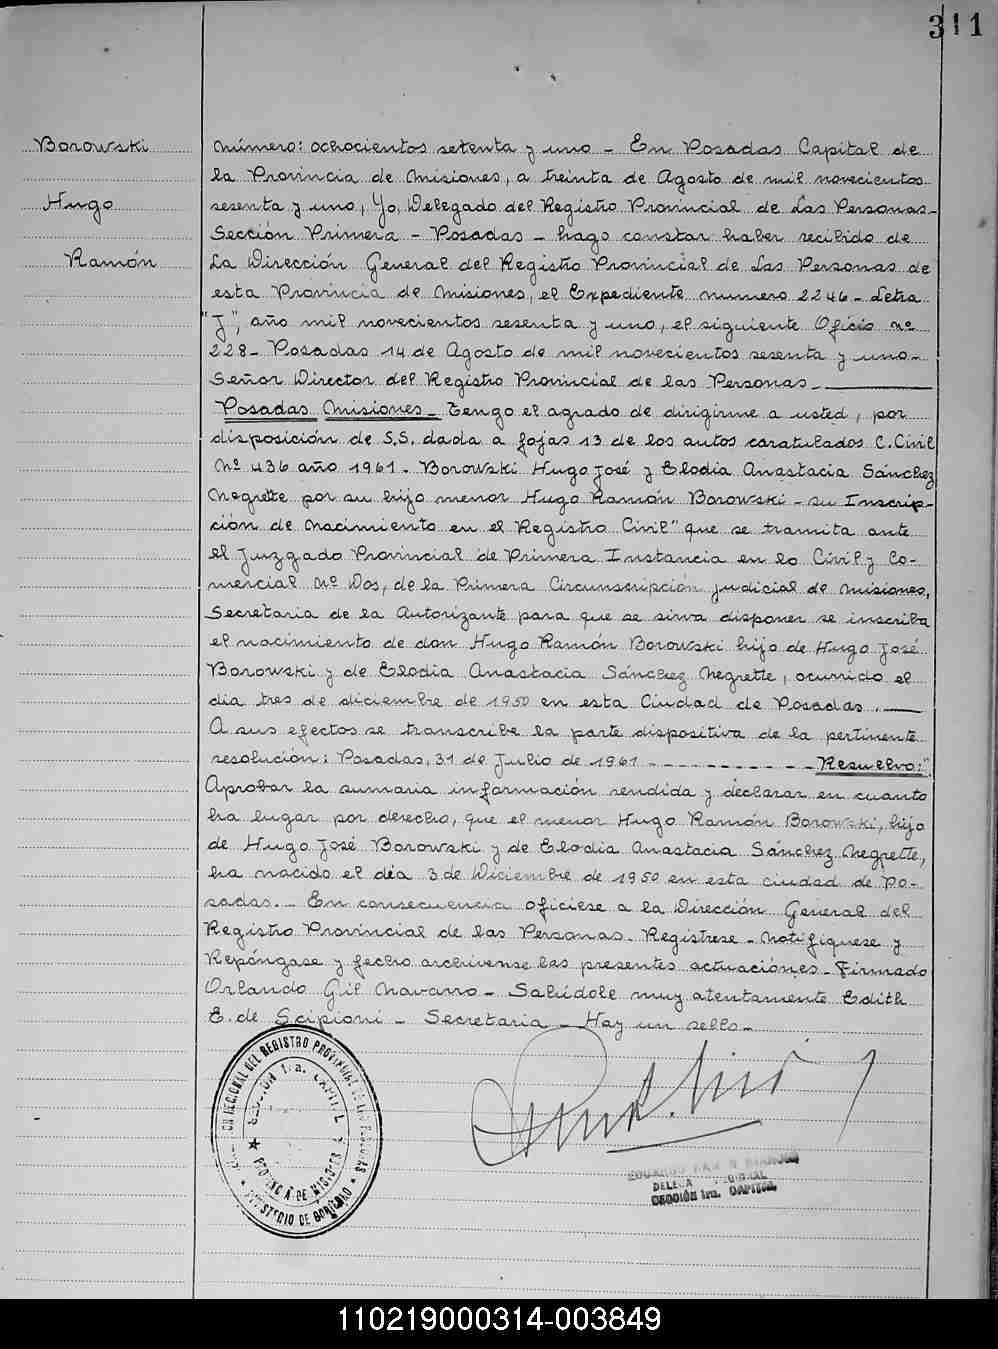 311
Borowski
Hugo
Ramón
Número: ochocientos setenta y uno - En Posadas Capital de
la Provincia de Misiones, a treinta de Agosto de mil novecientos
sesenta y uno, Yo, Delegado del Registro Provincial de Las Personas-
Sección Primera - Posadas - hago constar haber recibido de
La Dirección General del Registro Provincial de Las Personas de
esta Provincia de Misiones, el Expediente numero 2246 - Letra
"J", año mil novecientos sesenta y uno, el siguiente Oficio nº
228 - Posadas 14 de Agosto de mil novecientos sesenta y uno-
Señor Director del Registro Provincial de las Personas -
Posadas Misiones - Tengo el agrado de dirigirme a usted, por
disposición de S.S. dada a fojas 13 de los autos caratulados C. Civil
Nº 436 año 1961 - Borowski Hugo José y Elodia Anastacia Sánchez
Negrette por su hijo menor Hugo Ramón Borowski - su Inscrip-
ción de Nacimiento en el Registro Civil" que se tramita ante
el Juzgado Provincial de Primera Instancia en lo Civil y Co-
mercial Nº Dos, de la Primera Circunscripción judicial de Misiones,
Secretaria de la Autorizante para que se sirva disponer se inscriba
el nacimiento de don Hugo Ramón Borowski hijo de Hugo José
Borowski y de Elodia Anastacia Sánchez Negrette, ocurrido el
dia tres de diciembre de 1950 en esta Ciudad de Posadas.
A sus efectos se transcribe la parte dispositiva de la pertinente
resolución: Posadas, 31 de Julio de 1961 - - - - - - - - - - Resuelvo:"
Aprobar la sumaria información rendida y declarar en cuanto
ha lugar por derecho, que el menor Hugo Ramón Borowski, hijo
de Hugo José Borowski y de Elodia Anastacia Sánchez Negrette,
ha nacido el día 3 de Diciembre de 1950 en esta ciudad de Po-
sadas. - En consecuencia ofíciese a la Dirección General del
Registro Provincial de las Personas - Registrese - Notifíquese y
Repóngase y fecho archívense las presentes actuaciónes - Firmado
Orlando Gil Navarro - Salúdole muy atentamente Edith
E. de Scipioni - Secretaria - Hay un sello -
REGIONAL DEL REGISTRO PROVINCIAL DE LAS PERSONAS
SECCIÓN 1ra. CAPITAL
PROVINCIA DE MISIONES
MINISTERIO DE GOBIERNO
EDUARDO
SECCIÓN 1ra. CAPITAL
110219000314-003849